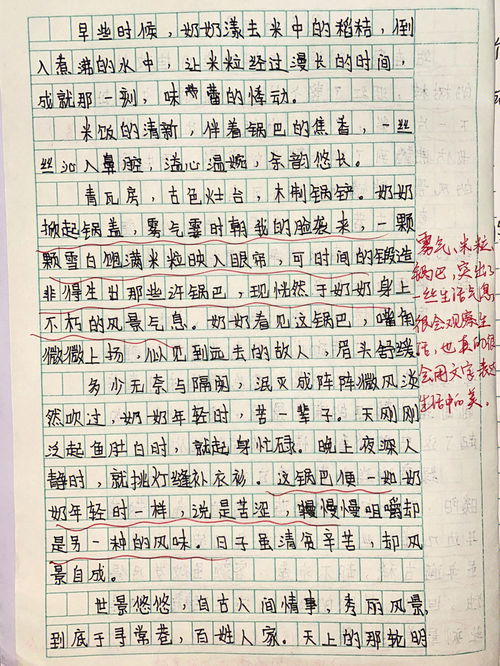 早些时候，奶奶漾去米中的稻秸，倒
入煮沸的水中，让米粒经过漫长的时间，
成就那一刻，味蕾的悸动。
米饭的清新，伴着锅巴的焦香，一丝
丝沁入鼻腔，溢心温婉，余韵悠长。
青瓦房，古色灶台，木制锅铲。奶奶
掀起锅盖，雾气霎时朝我的脸袭来，一颗
颗雪白饱满米粒映入眼帘，可时间的锻造
非得生出那些许锅巴，现恍然于奶奶身上
不朽的风景气息。奶奶看见这锅巴，嘴角
微微上扬，似见到远去的故人，眉头舒缓
多少无奈与隔阂，泯灭成阵阵微风淡
然吹过，奶奶年轻时，苦一辈子。天刚刚
泛起鱼肚白时，就起身忙碌。晚上夜深人
静时，就挑灯缝补衣衫。这锅巴便一如奶
奶年轻时一样，说是苦涩，慢慢慢咀嚼却
是另一种的风味。日子虽清贫辛苦，却风
景自成。
世景悠悠，自古人间情事，秀丽风景，
到底于寻常巷，百姓人家。天上的那轮明
雾气、米粒、
锅巴，突出了
一些生活气息
很会观察生
活，也真的很
会用文字表达
生活中的美。